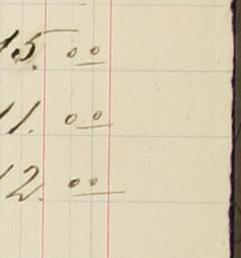 15. 00
11. 00
12. 00